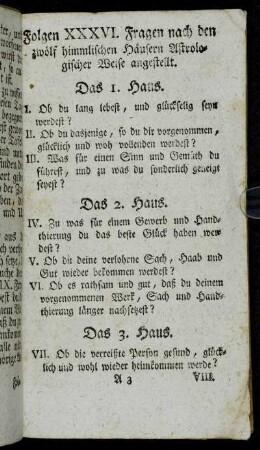 Folgen XXXVI. Fragen nach den
zwölf himmlischen Häusern Astrolo-
gischer Weise angestellt.
Das 1. Haus.
I. Ob du lang lebest, und glückselig seyn
werdest?
II. Ob du dasjenige, so du dir vorgenommen,
glücklich und woh vollenden werdest?
III. Was für einen Sinn und Gemüth du
führest, und zu was du sonderlich geneigt
seyest?
Das 2. Haus.
IV. Zu was für einem Gewerb und Hand-
thierung du das beste Glück haben wer-
dest?
V. Ob du deine verlohrne Sach, Haab und
Gut wieder bekommen werdest?
VI. Ob es rathsam und gut, daß du deinem
vorgenommenen Werk, Sach und Hand-
thierung länger nachsetzest?
Das 3. Haus.
VII. Ob die verreißte Person gesund, glück-
lich und wohl wieder heimkommen werde?
A 3 VIII.